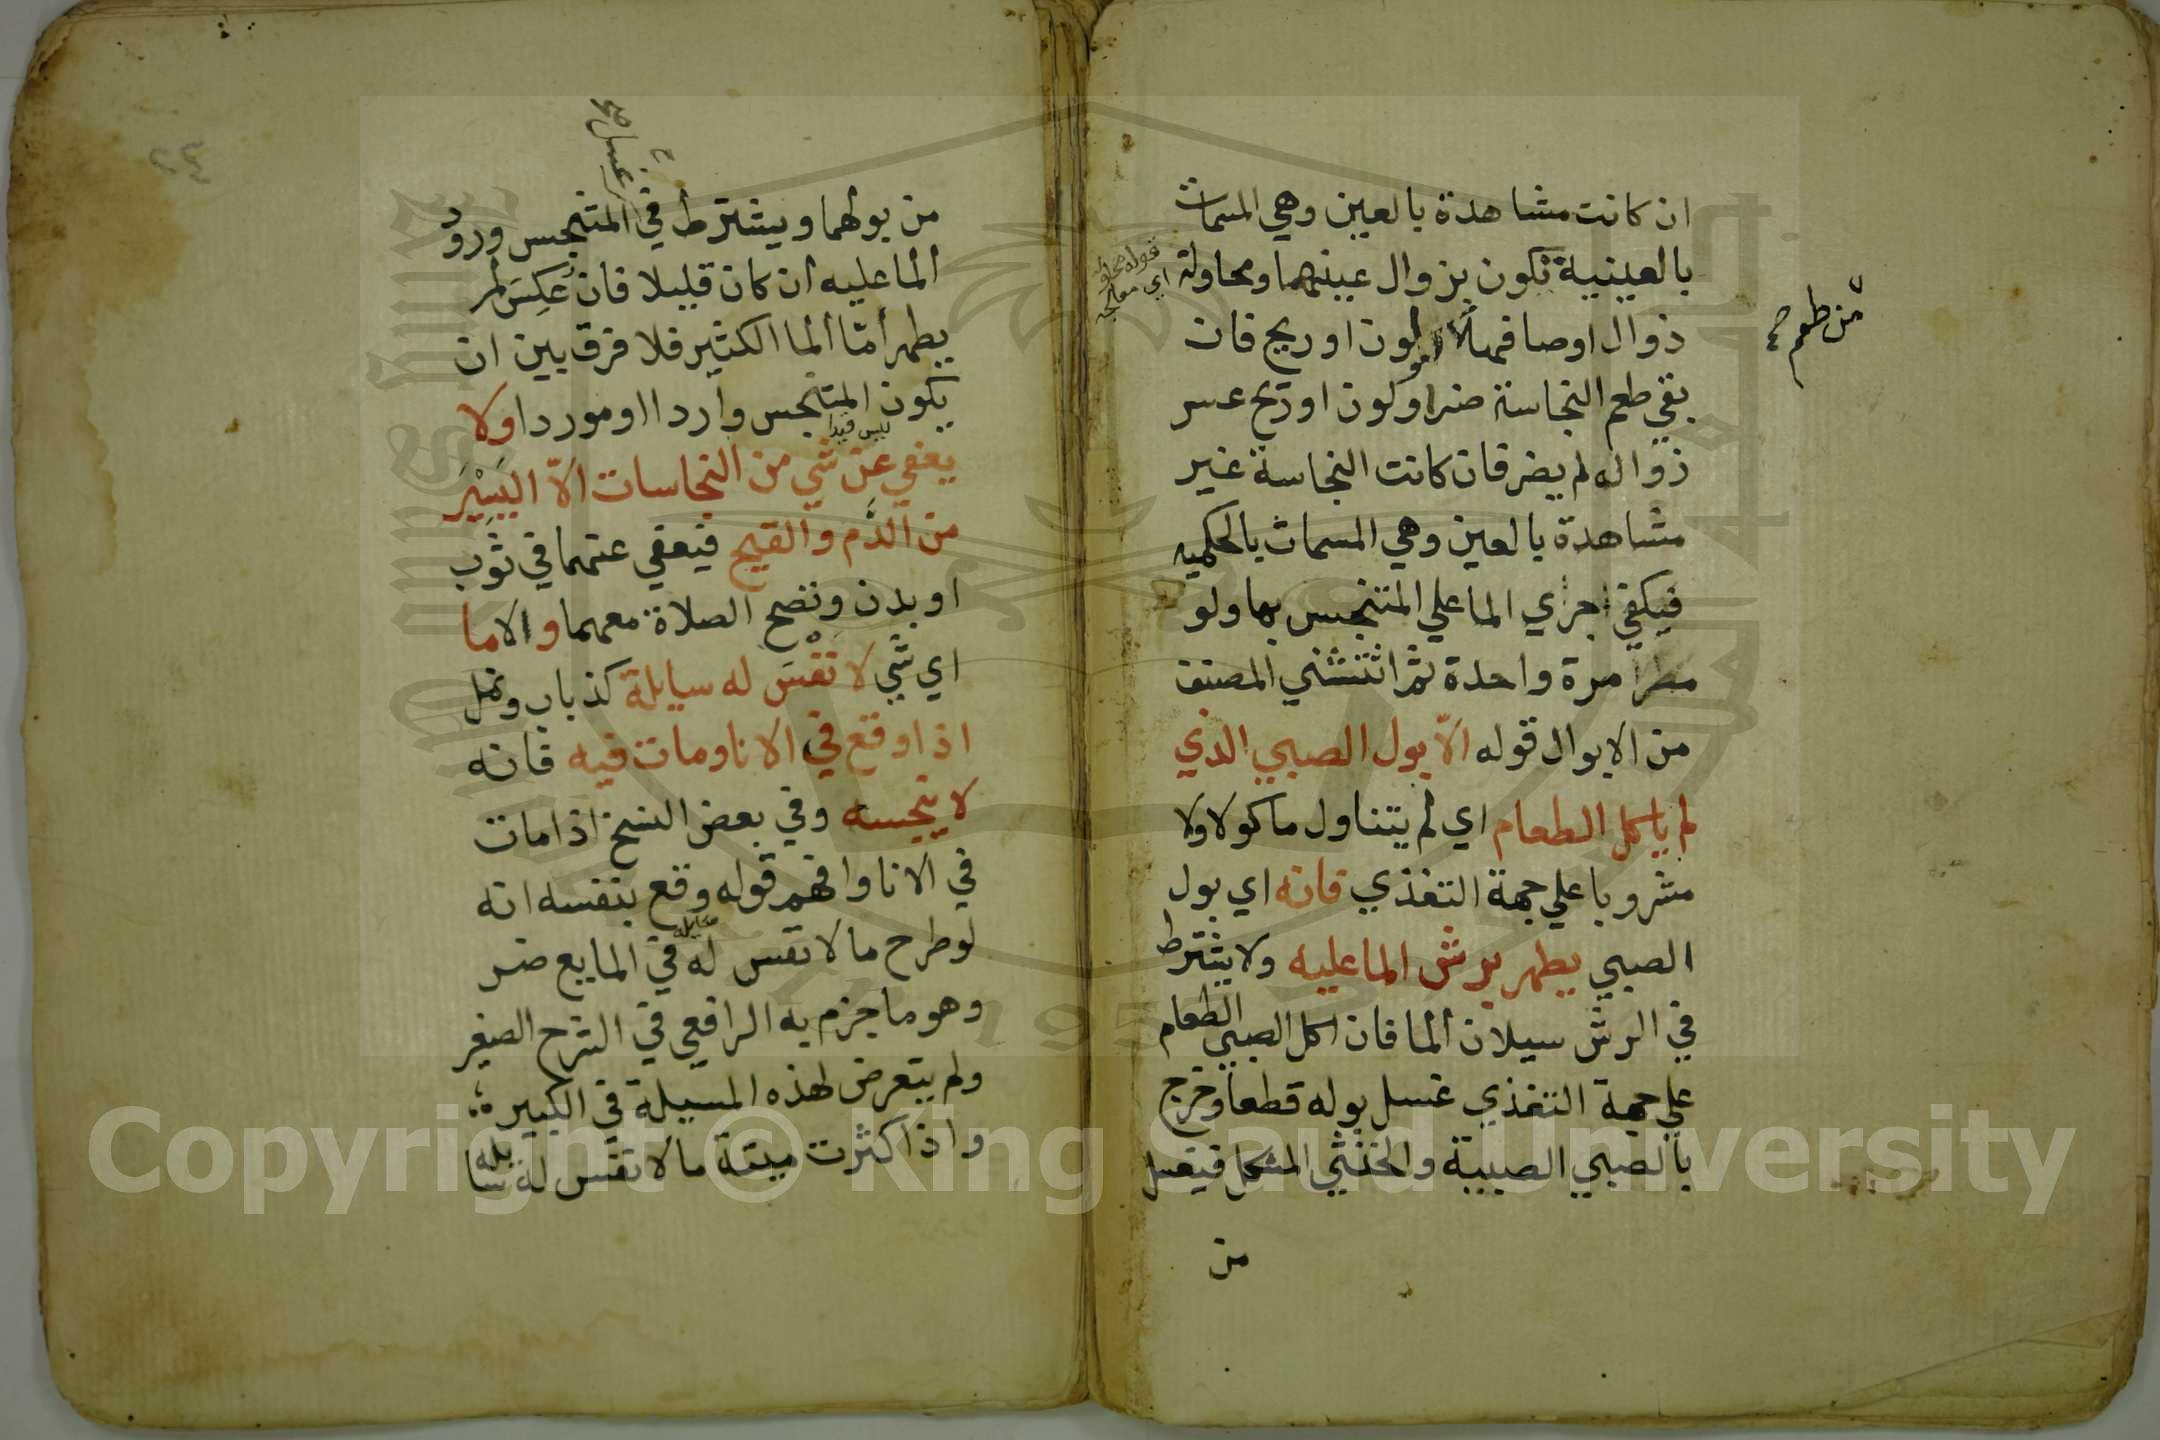 ان كانت مشاهدة بالعين وهي المسماث
بالعينية تكون بزوال عينها ومحاولة
زوال اوصافها لون او ريح فان
بقي طعم النجاسة ضر او لون او ريح عسر
زواله لم يضر فان كانت النجاسة غير
مشاهدة بالعين وهي المسماث بالحكميه
فيكفي اجراي الما علي المتنجس بها ولو
مطرا مرة واحدة ثم اثتثني المصنف
من الابوال قوله الّا بول الصبي الذي
لم ياكل الطعام اي لم يتناول ماكولا ولا
مشروبا علي جهة التغذي فانه اي بول
الصبي يطهر برش الما عليه ولا يشترط
في الرش سيلان ألما فان اكل الصبي الطعام
علي جهة التغذي غسل بوله قطعا وخرج
بالصبي الصبية والخنثي المشكل فيغسل
من
من طعم صح
قوله محاولة
اي معالجة
من بولهما ويشترط في المتنجس ورود
ألما عليه أن كان قليلا فان عُكِسَ لم
يطهر أمّا ألما الكثير فلا فرق بين ان
يكون المتنجس واردا او موردا ولا
ليس قيدا
يعفي عن شي من النجاسات الّا اليَسِيْرَ
من الدَّم والقيح فيعفي عنهما في ثوب
او بدن وتصح الصلاة معهما والا ما
اي شي لا نَفْسَ له سايلة كذباب ونمل
اذا وقع في الانا ومات فيه فانه
لا ينجسه وفي بعض النسخ اذا مات
في الانا وافهم قوله وقع بنفسه انه
لو طرح ما لا نفس له سايله في المايع ضر
وهو ما جزم به الرافعي في الشرح الصغير
ولم يتعرض لهذه المسيلة في الكبير
واذا كثرت ميتة ما لا نفس له سايله
Copyright © King Saud University